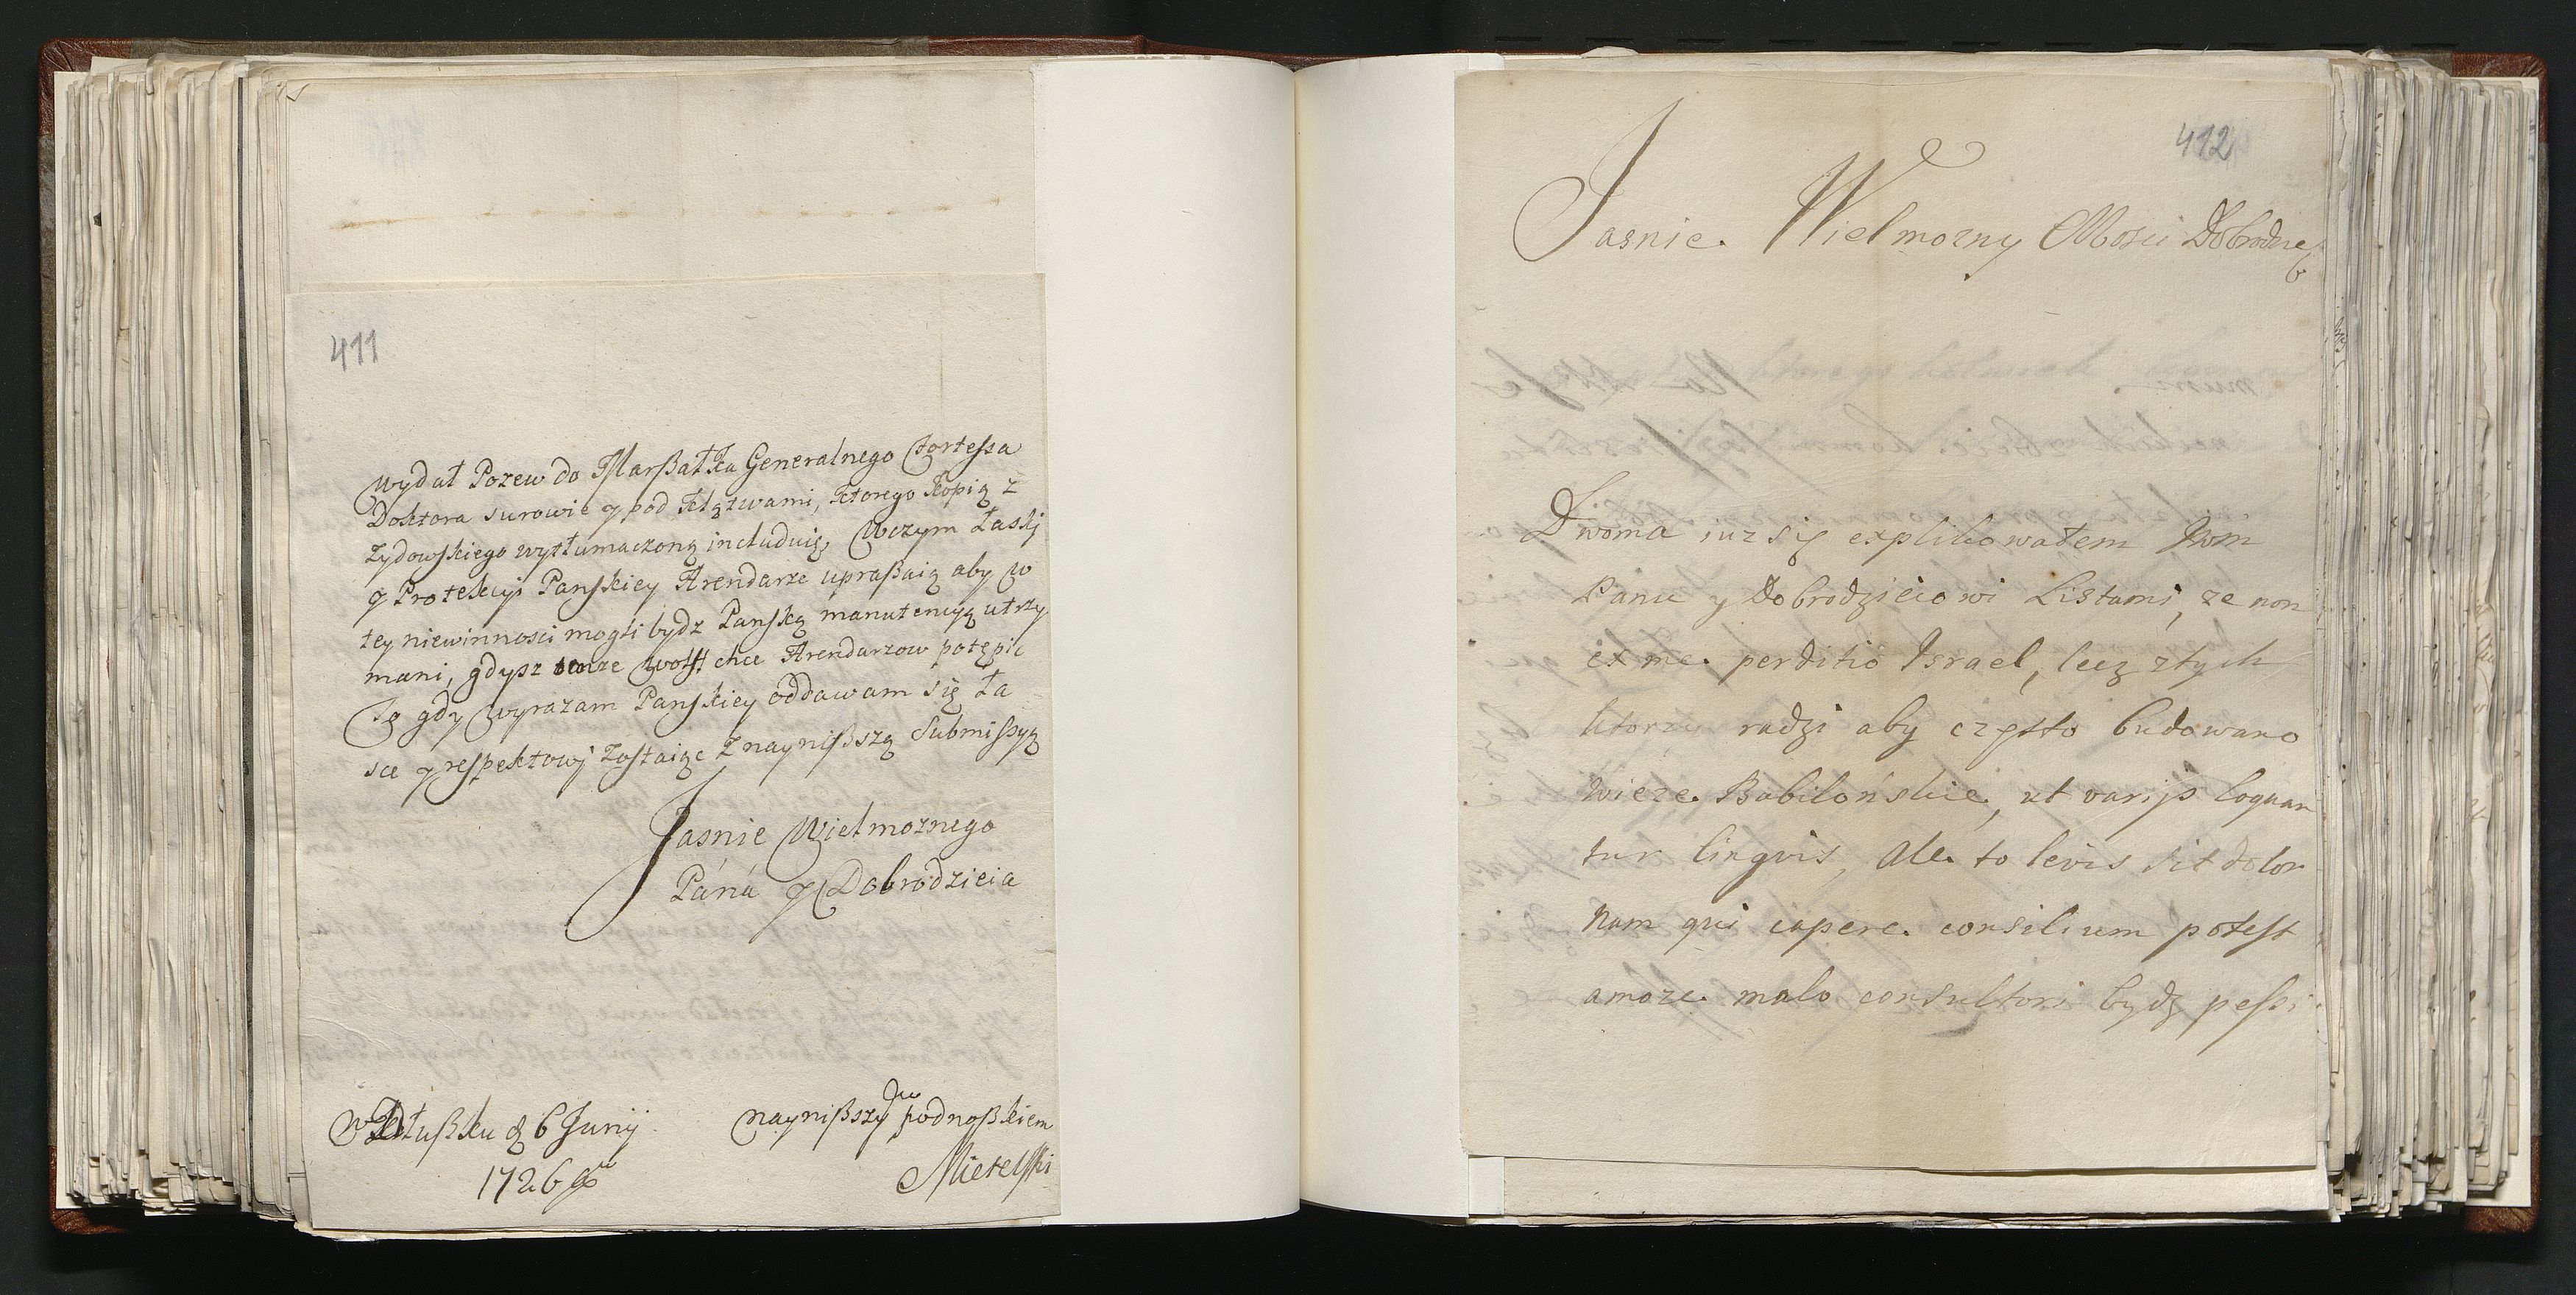 411
wydał Pozew do Marßałka Generalnego Fortessa
Doktora surowie y pod klątwami, ktorego kopią z
Zydowskiego wytłumaczoną includuię, Wczym Łaski
y Protekcyi Panskiey Arendarze upraßaią aby w
tey niewinnosci mogli bydz Panską manutencyą utrzy
mani, gdysz tenze Wolff chce Arendarzow potępic
To gdy wyrazam Panskiey oddawam się Ła
sce y respektowi zostaiąc z naynißszą Submissyą
Jasnie Wielmoznego
Páná y Dobrodzieia
w Kłußku d 6 Junij
1726
naynißszy podnoßkiem
Mietelski
412
Jasnie Wielmozny Mosci Dobrodzie
Dwoma iuz się explikowałem Jwm
Panu y Dobrodzieiowi Listami, ze non
ex me perditio Israel, lecz złych
ktorzy radzi aby często budowano
wieze Babilońskie, ut varijs loquan
tur lingvis, Ale to levis sit dolor
nam qui capere consilium potest
amoze malo consultori bydz pessi